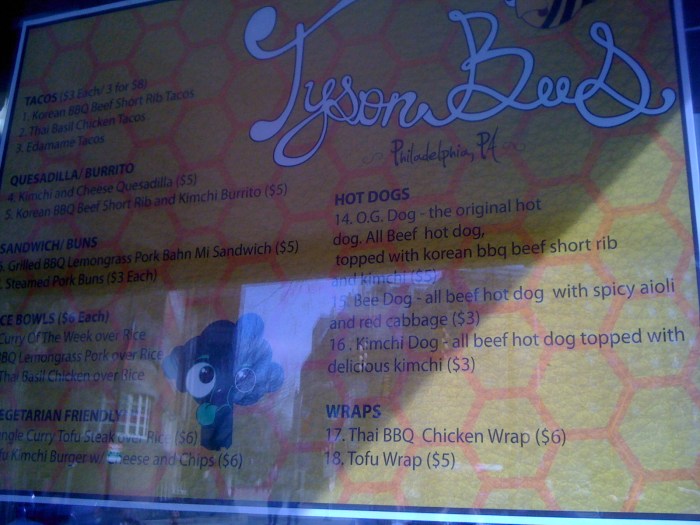 Tyson BeeS
Philadelphia, PA
TACOS ($3 Each/ 3 for $8)
1. Korean BBQ Beef Short Rib Tacos
2. Thai Basil Chicken Tacos
3. Edamame Tacos
QUESADILLA/ BURRITO
4. Kimchi and Cheese Quesadilla ($5)
5. Korean BBQ Beef Short Rib and Kimchi Burrito ($5)
SANDWICH/ BUNS
Grilled BBQ Lemongrass Pork Bahn Mi Sandwich ($5)
Steamed Pork Buns ($3 Each)
CE BOWLS ($6 Each)
Curry Of The Week over Rice
BBQ Lemongrass Pork over Rice
Thai Basil Chicken over Rice
EGETARIAN FRIENDLY
ngle Curry Tofu Steak over Rice ($6)
fu Kimchi Burger w/ Cheese and Chips ($6)
HOT DOGS
14. O.G. Dog - the original hot
dog. All Beef hot dog,
topped with korean bbq beef short rib
and kimchi ($5)
15. Bee Dog - all beef hot dog with spicy aioli
and red cabbage ($3)
16 . Kimchi Dog - all beef hot dog topped with
delicious kimchi ($3)
WRAPS
17. Thai BBQ Chicken Wrap ($6)
18. Tofu Wrap ($5)